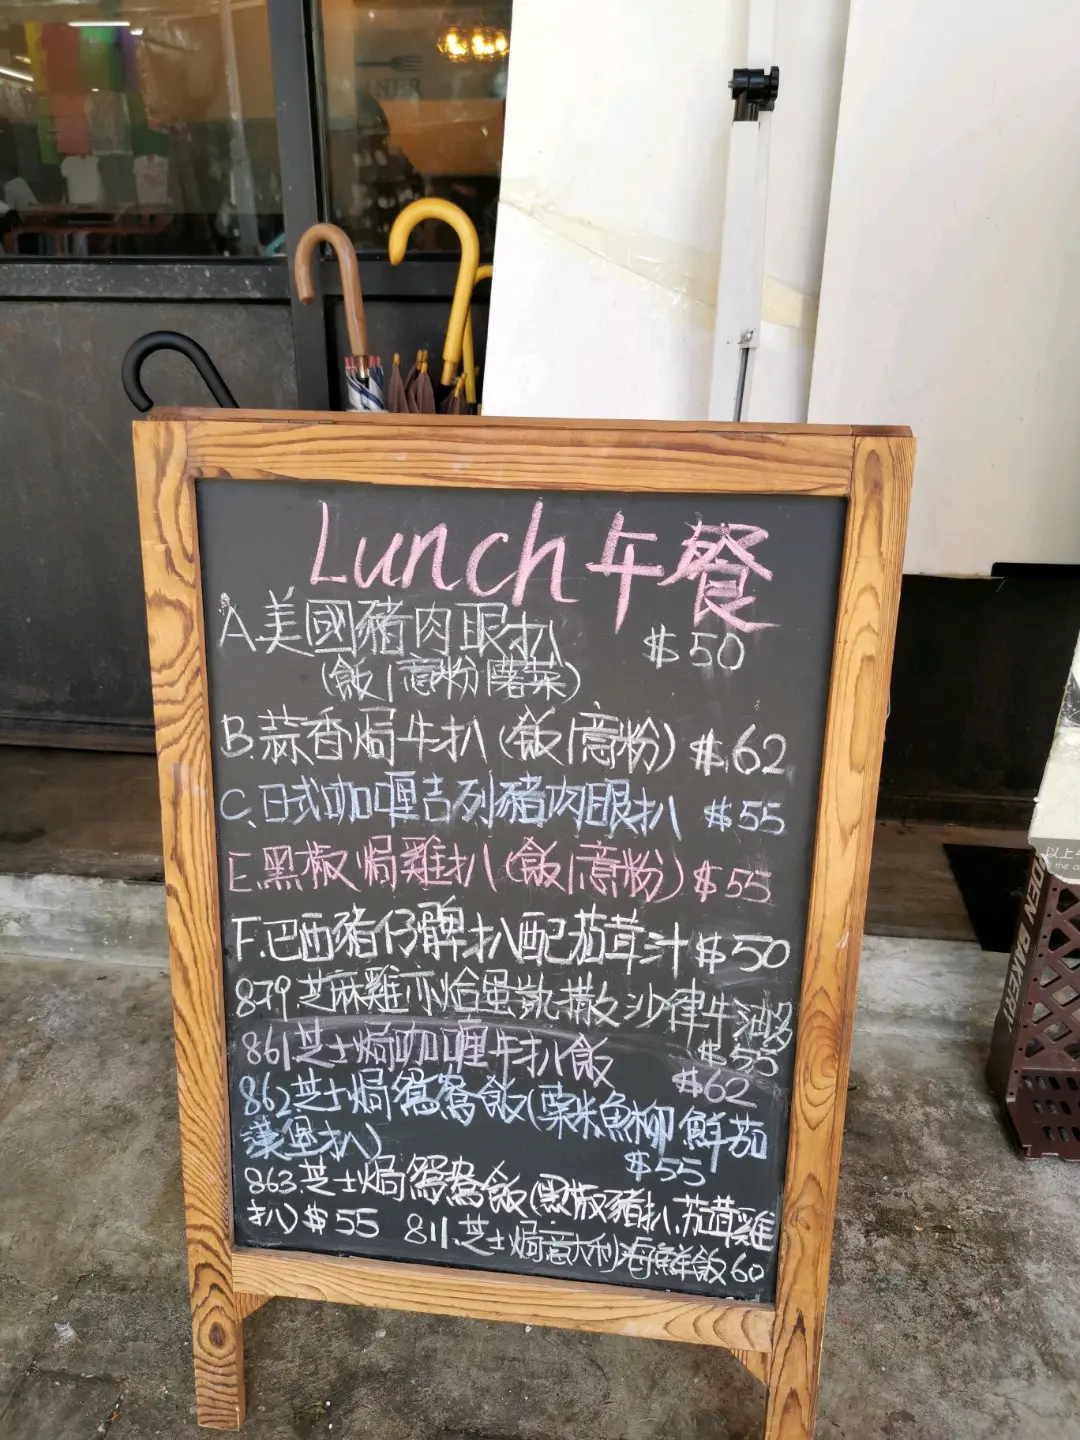 Lunch午餐
A.美國豬肉眼扒 $50
(飯/意粉薯菜)
B.蒜香焗牛扒(飯/意粉) $62
C.日式咖喱吉列豬肉眼扒 $55
E.黑椒焗雞扒(飯/意粉) $55
F.巴西豬仔髀扒配茄茸汁 $50
879芝麻雞
蛋凱撒沙律牛油
$55
861芝士焗咖喱牛扒飯 $62
862芝士焗鴛鴦飯(粟米魚柳 鮮茄
漢堡扒) $55
863.芝士焗鴛鴦飯(黑椒豬扒.茄茸雞
扒) $55 811.芝士焗意大利海鮮飯60
以上
DEN BAKERY